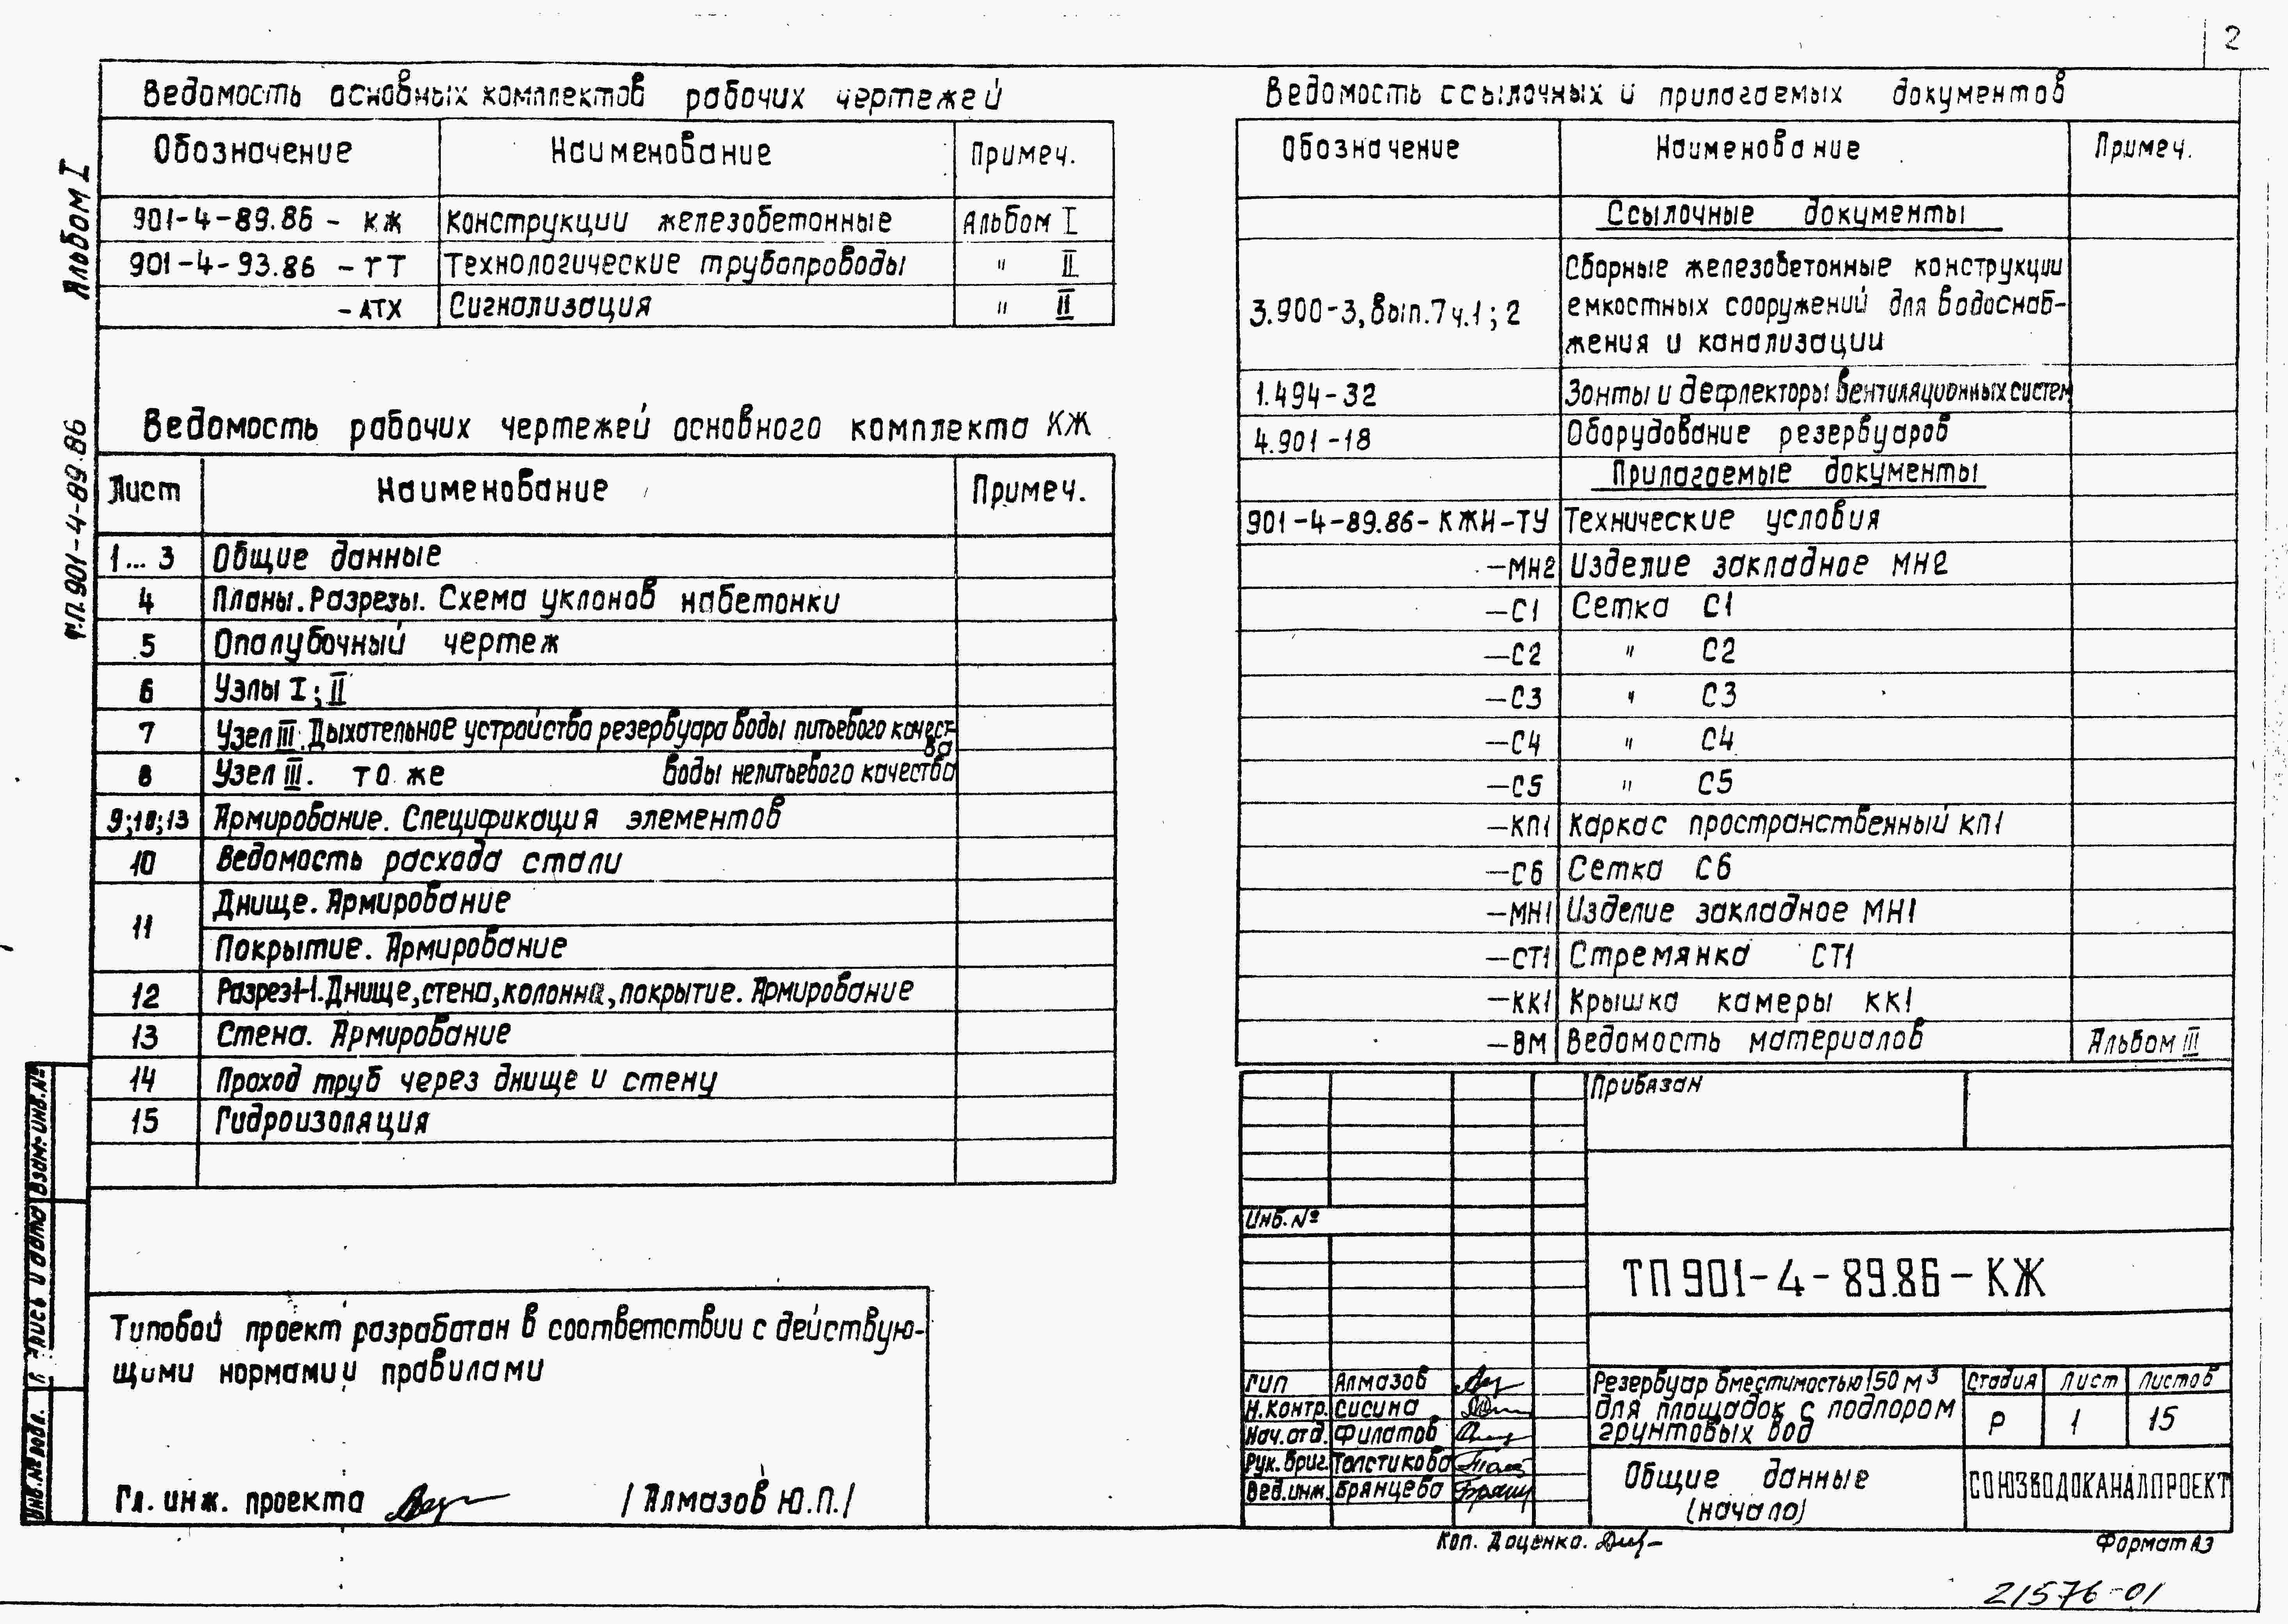 2
Альбом I
т.п. 901-4-89.86
Ведомость основных комплектов рабочих чертежей
Обозначение Наименование Примеч.
901-4-89.86 - КЖ Конструкции железобетонные Альбом I
901-4-93.86 - ТТ Технологические трубопроводы " II
- АТХ Сигнализация " II
Ведомость рабочих чертежей основного комплекта КЖ
Лист Наименование Примеч.
1...3 Общие данные
4 Планы. Разрезы. Схема уклонов набетонки
5 Опалубочный чертеж
6 Узлы I; II
7 Узел III. Дыхательное устройство резервуара воды питьевого качест-
ва
8 Узел III. то же воды непитьевого качества
9;10;13 Армирование. Спецификация элементов
10 Ведомость расхода стали
11 Днище. Армирование
Покрытие. Армирование
12 Разрез 1-1. Днище, стена, колонна, покрытие. Армирование
13 Стена. Армирование
14 Проход труб через днище и стену
15 Гидроизоляция
Типовой проект разработан в соответствии с действую-
щими нормами и правилами
Гл. инж. проекта /Алмазов Ю.П./
Взам. инв. №
дата
Инв. № подл.
Ведомость ссылочных и прилагаемых документов
Обозначение Наименование Примеч.
Ссылочные документы
3.900-3, вып. 7 ч.1; 2 Сборные железобетонные конструкции
емкостных сооружений для водоснаб-
жения и канализации
1.494-32 Зонты и дефлекторы вентиляционных систем
4.901-18 Оборудование резервуаров
Прилагаемые документы
901-4-89.86-КЖИ-ТУ Технические условия
-МН2 Изделие закладное МН2
-С1 Сетка С1
-С2 " С2
-С3 " С3
-С4 " С4
-С5 " С5
-КП1 Каркас пространственный КП1
-С6 Сетка С6
-МН1 Изделие закладное МН1
-СТ1 Стремянка СТ1
-КК1 Крышка камеры КК1
-ВМ Ведомость материалов Альбом III
Привязан
Инв. №
ТП 901-4-89.86-КЖ
ГИП Алмазов
Н.контр. Сисина
Нач.отд. Филатов
Рук.бриг. Толстикова
Вед.инж. Брянцева
Резервуар вместимостью 150 м³
для площадок с подпором
грунтовых вод
Стадия Лист Листов
Р 1 15
Общие данные
(начало)
СОЮЗВОДОКАНАЛПРОЕКТ
Коп. Доценко.
Формат А3
21576-01